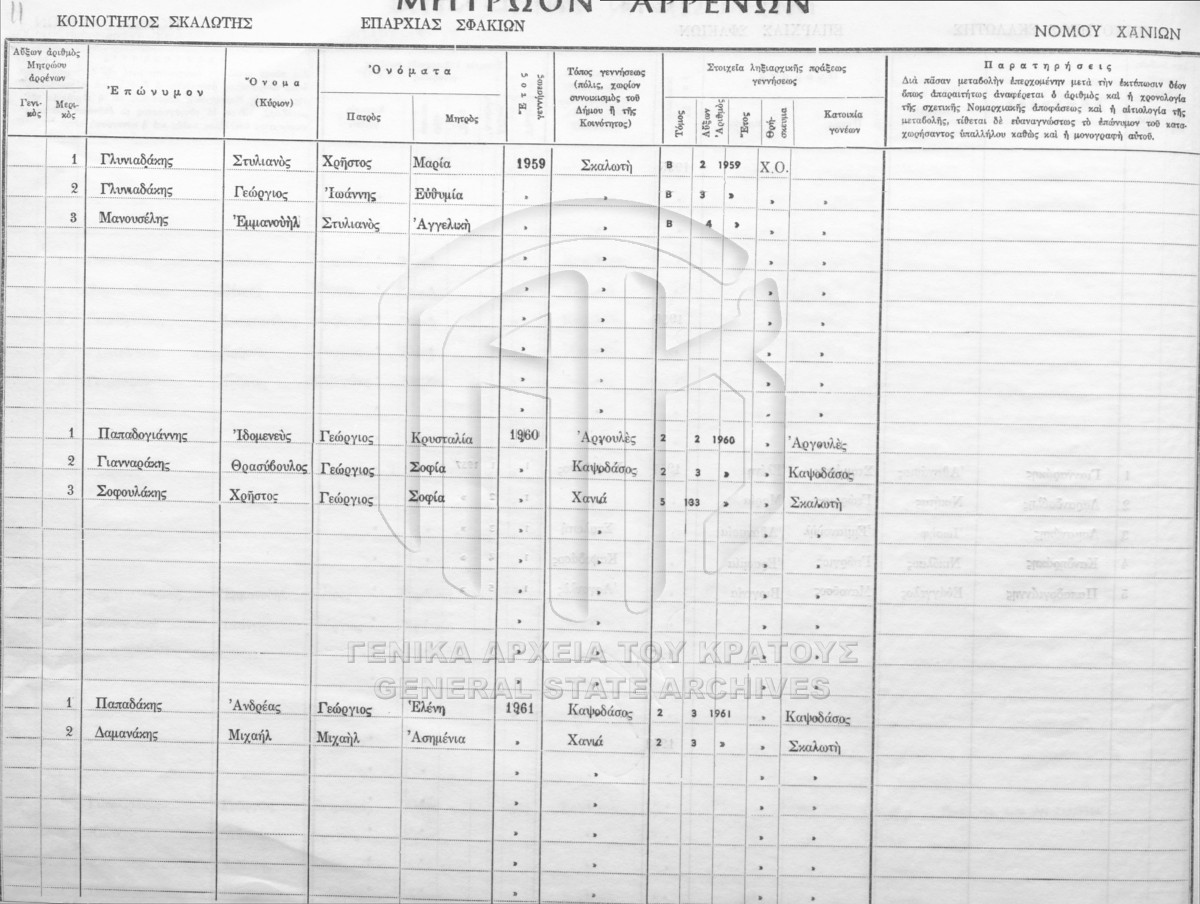 11
ΜΗΤΡΩΟΝ ΑΡΡΕΝΩΝ
ΚΟΙΝΟΤΗΤΟΣ ΣΚΑΛΩΤΗΣ ΕΠΑΡΧΙΑΣ ΣΦΑΚΙΩΝ ΝΟΜΟΥ ΧΑΝΙΩΝ
Αὔξων ἀριθμὸς Μητρώου ἀρρένων
Γενικὸς Μερικὸς
Ἐπώνυμον
Ὄνομα (Κύριον)
Ὀνόματα
Πατρὸς Μητρὸς
Ἔτος γεννήσεως
Τόπος γεννήσεως (πόλις, χωρίον συνοικισμὸς τοῦ Δήμου ἢ τῆς Κοινότητος)
Στοιχεῖα ληξιαρχικῆς πράξεως γεννήσεως
Τόμος Αὔξων Ἀριθμὸς Ἔτος Θρήσκευμα Κατοικία γονέων
Παρατηρήσεις
Διὰ πᾶσαν μεταβολὴν ἐπερχομένην μετὰ τὴν ἐκτύπωσιν δέον
ὅπως ἀπαραιτήτως ἀναφέρεται ὁ ἀριθμὸς καὶ ἡ χρονολογία
τῆς σχετικῆς Νομαρχιακῆς ἀποφάσεως καὶ ἡ αἰτιολογία τῆς
μεταβολῆς, τίθεται δὲ εὐαναγνώστως τὸ ἐπώνυμον τοῦ κατα-
χωρήσαντος ὑπαλλήλου καθὼς καὶ ἡ μονογραφὴ αὐτοῦ.
1 Γλυνιαδάκης Στυλιανὸς Χρῆστος Μαρία 1959 Σκαλωτὴ Β 2 1959 Χ.Ο.
2 Γλυνιαδάκης Γεώργιος Ἰωάννης Εὐθυμία » » Β 3 » » »
3 Μανουσέλης Ἐμμανουὴλ Στυλιανὸς Ἀγγελικὴ » » Β 4 » » »
» » » »
» » » »
» » » »
» » » »
» » » »
» » » »
1 Παπαδογιάννης Ἰδομενεὺς Γεώργιος Κρυσταλία 1960 Ἀργουλὲς 2 2 1960 » Ἀργουλὲς
2 Γιανναράκης Θρασύβουλος Γεώργιος Σοφία » Καψοδάσος 2 3 » » Καψοδάσος
3 Σοφουλάκης Χρῆστος Γεώργιος Σοφία » Χανιά 5 133 » » Σκαλωτὴ
» » » »
» » » »
» » » »
» » » »
» » » »
» » » »
1 Παπαδάκης Ἀνδρέας Γεώργιος Ἑλένη 1961 Καψοδάσος 2 3 1961 » Καψοδάσος
2 Δαμανάκης Μιχαὴλ Μιχαὴλ Ἀσημένια » Χανιά 2 3 » » Σκαλωτὴ
» » » »
» » » »
» » » »
» » » »
» » » »
ΓΕΝΙΚΑ ΑΡΧΕΙΑ ΤΟΥ ΚΡΑΤΟΥΣ
GENERAL STATE ARCHIVES